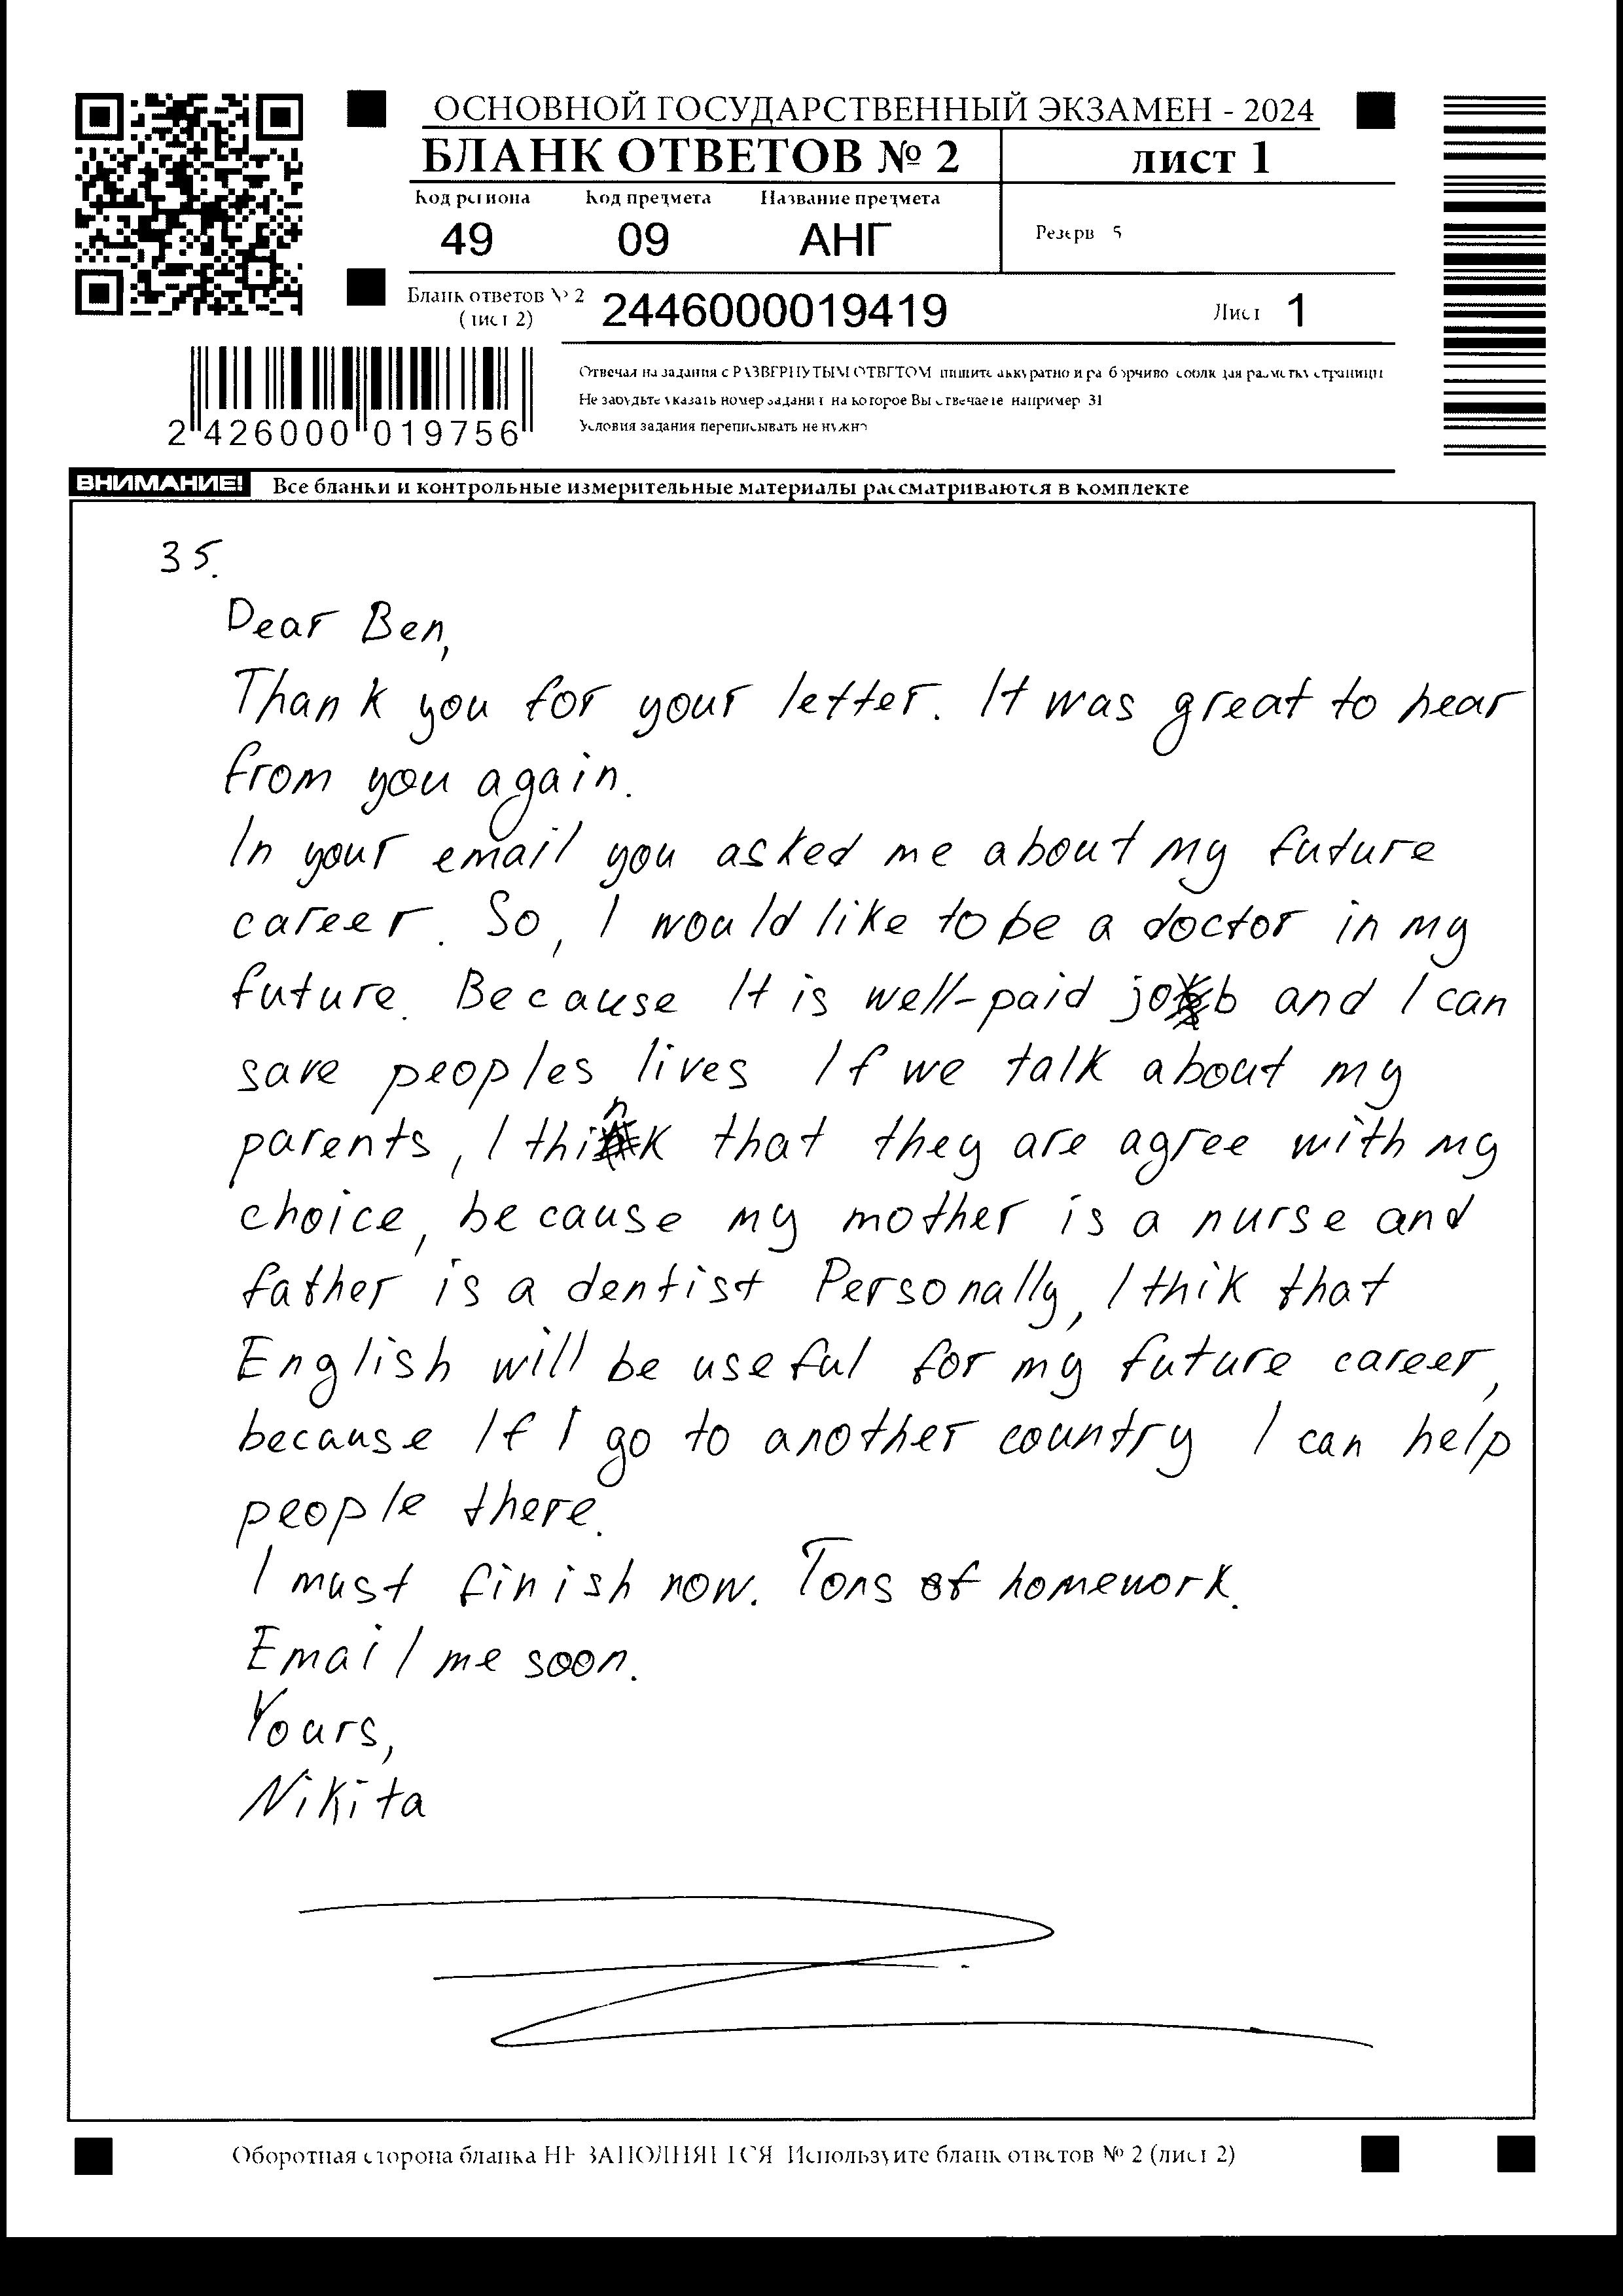 ОСНОВНОЙ ГОСУДАРСТВЕННЫЙ ЭКЗАМЕН - 2024
БЛАНК ОТВЕТОВ № 2
лист 1
Код региона
Код предмета
Название предмета
49
09
АНГ
Резерв 5
Бланк ответов № 2
(лист 2)
2446000019419
Лист 1
Отвечая на задания с РАЗВЕРНУТЫМ ОТВЕТОМ пишите аккуратно и разборчиво соблюдая разметку страницы
Не забудьте указать номер задания на которое Вы отвечаете например 31
Условия задания переписывать не нужно
2 426000 019756
ВНИМАНИЕ!
Все бланки и контрольные измерительные материалы рассматриваются в комплекте
35.
Dear Ben,
Thank you for your letter. It was great to hear
from you again.
In your email you asked me about my future
career. So, I would like to be a doctor in my
future. Because It is well-paid job and I can
save peoples lives If we talk about my
parents, I think that they are agree with my
choice, because my mother is a nurse and
father is a dentist Personally, I thik that
English will be useful for my future career,
because If I go to another country I can help
people there.
I must finish now. Tons of homework.
Email me soon.
Yours,
Nikita
Оборотная сторона бланка НЕ ЗАПОЛНЯЕТСЯ Используйте бланк ответов № 2 (лист 2)